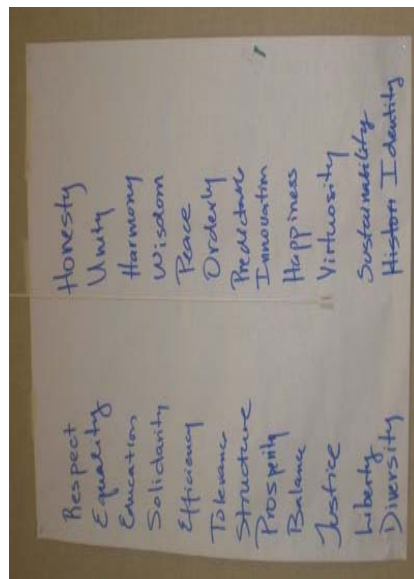 Respect
Equality
Education
Solidarity
Efficiency
Tolerance
Structure
Prosperity
Balance
Justice
Liberty
Diversity
Honesty
Unity
Harmony
Wisdom
Peace
Orderly
Predictable
Innovation
Happiness
Virtuosity
Sustainability
Histori Identity